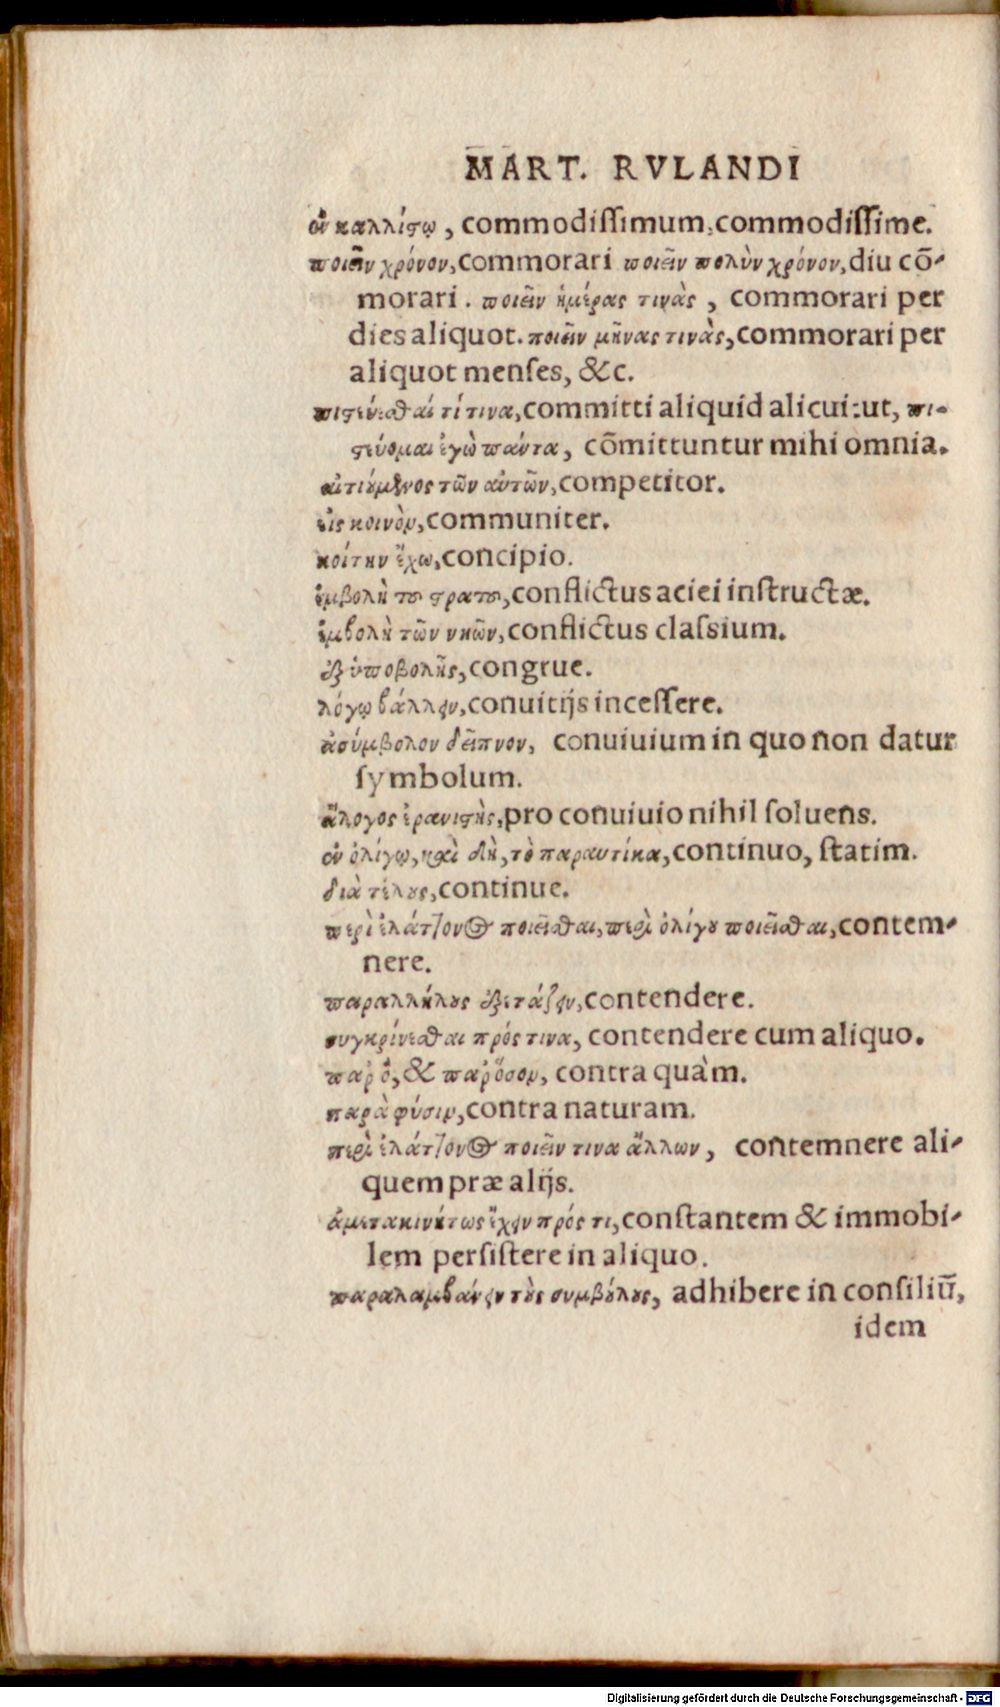 MART. RVLANDI
ἐν καλλίϛῳ, commodiſſimum, commodiſſime.
ποιεῖν χρόνον, commorari ποιεῖν πολὺν χρόνον, diu cō-
morari. ποιεῖν ἡμέρας τινὰς, commorari per
dies aliquot. ποιεῖν μῆνας τινὰς, commorari per
aliquot menſes, &c.
πιϛεύεσθαί τί τινα, committi aliquid alicui: ut, πι-
ϛεύομαι ἐγὼ πάντα, cōmittuntur mihi omnia.
αἰτιούμενος τῶν αὐτῶν, competitor.
εἰς κοινὸν, communiter.
κοίτην ἔχω, concipio.
ἐμβολὴ τοῦ ϛρατοῦ, conflictus aciei inſtructæ.
ἐμβολὴ τῶν νηῶν, conflictus claſsium.
ἐξ ὑποβολῆς, congrue.
λόγῳ βάλλειν, conuitijs inceſſere.
ἀσύμβολον δεῖπνον, conuiuium in quo non datur
ſymbolum.
ἄλογος ἐρανιϛὴς, pro conuiuio nihil ſoluens.
ἐν ὀλίγῳ, καὶ δὴ, τὸ παραυτίκα, continuo, ſtatim.
διὰ τέλους, continue.
περὶ ἐλάττονος ποιεῖσθαι, περὶ ὀλίγου ποιεῖσθαι, contem-
nere.
παραλλήλους ἐξετάζειν, contendere.
συγκρίνεσθαι πρός τινα, contendere cum aliquo.
παρ' ὃ, & παρ' ὅσον, contra quàm.
παρὰ φύσιν, contra naturam.
περὶ ἐλάττονος ποιεῖν τινα ἄλλων, contemnere ali-
quem præ alijs.
ἀμετακινήτως ἔχειν πρός τι, conſtantem & immobi-
lem perſiſtere in aliquo.
παραλαμβάνειν τοὺς συμβούλους, adhibere in conſiliū,
idem
Digitalisierung gefördert durch die Deutsche Forschungsgemeinschaft - DFG